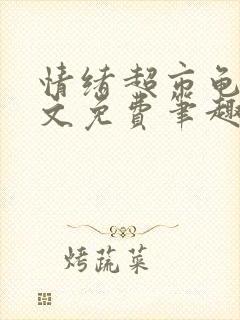 情绪超市龟
文免费笔趣
烤蔬菜